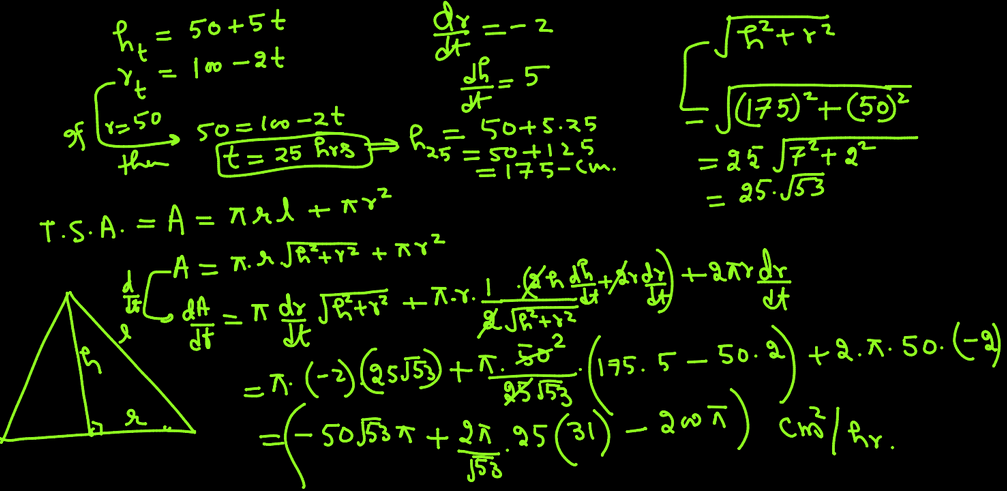 h_t = 50+5t
r_t = 100-2t
If r=50
then 50=100-2t
t = 25 hrs ⇒ h_25 = 50+5.25
= 50+125
= 175-cm.
dr/dt = -2
dh/dt = 5
√(h²+r²)
= √((175)²+(50)²)
= 25 √(7²+2²)
= 25.√53
T.S.A. = A = πrl + πr²
d/dt A = π.r √(h²+r²) + πr²
dA/dt = π dr/dt √(h²+r²) + π.r. 1/(2√(h²+r²)) .(2h dh/dt + 2r dr/dt) + 2πr dr/dt
= π. (-2)(25√53) + π. 50 2/(25√53) .(175.5 - 50.2) + 2.π.50.(-2)
= (-50√53π + 2π/√53 .25(31) - 200π) cm²/hr.
l
h
r